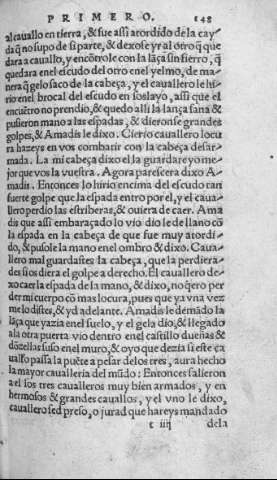 PRIMERO. 148
al cauallo en tierra, & fue assi atordido de la cay
da q̃ no supo de si parte, & dexose yr al otro q̃ que
dara a cauallo, y encõtrole con la lãça sin fierro, q̃
quedara en el escudo del otro en el yelmo, de ma
nera q̃ gelo saco de la cabeça, y el cauallero le hi
rio en el brocal del escudo en soslayo, assi que el
encuẽtro no prendio, & quedo alli la lança sana &
pusieron mano a las espadas, & dieronse grandes
golpes, & Amadis le dixo. Cierto cauallero locu
ra hazeys en vos combatir con la cabeça desar
mada. La mi cabeça dixo el la guardare yo me
jor que vos la vuestra. Agora parescera dixo A
madis. Entonces lo hirio encima del escudo tan
fuerte golpe que la espada entro por el, y el caua
llero perdio las estriberas, & ouiera de caer. Ama
dis que assi embaraçado lo vio dio le de llano cõ
la espada en la cabeça de que fue muy atordi
do, & pusole la mano en el ombro & dixo. Caua
llero mal guardastes la cabeça, que la perdiera
des si os diera el golpe a derecho. El cauallero de
xo caer la espada de la mano, & dixo, no q̃ero per
der mi cuerpo cõ mas locura, pues que ya vna vez
me lo distes, & yd adelante. Amadis le demãdo la
lãça que yazia en el suelo, y el gela dio, & llegado
a la otra puerta vio dentro en el castillo dueñas &
dõzellas suso en el muro, & oyo que dezia si este ca
uallo passa la puẽte a pesar delos tres, aura hecho
la mayor caualleria del mũdo: Entonces salieron
a el los tres caualleros muy bien armados, y en
hermosos & grandes cauallos, y el vno le dixo,
cauallero sed preso, o jurad que hareys mandado
t iiij dela